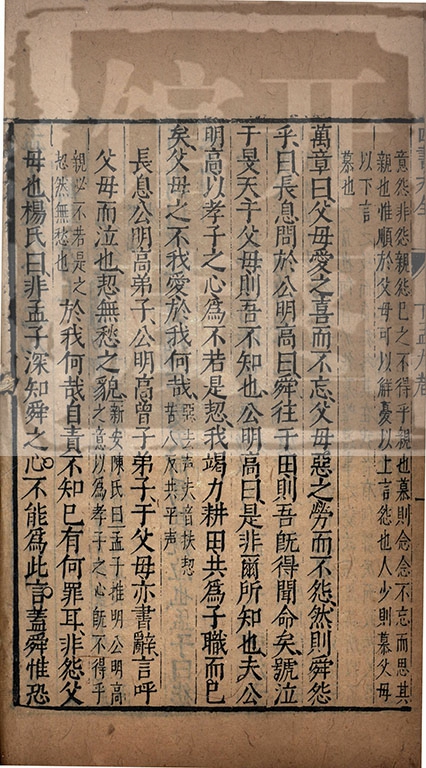 意怨非怨親怨己之不得乎親也慕則念念不忘而思其
親也惟順於父母可以解憂以上言怨也人少則慕父母
以下言
慕也
萬章曰父母愛之喜而不忘父母惡之勞而不怨然則舜怨
乎曰長息問於公明高曰舜往于田則吾旣得聞命矣號泣
于旻天于父母則吾不知也公明高曰是非爾所知也夫公
明高以孝子之心爲不若是恝我竭力耕田共爲子職而已
矣父母之不我愛於我何哉
惡去声夫音扶恝
苦八反共平声
長息公明高弟子公明高曾子弟子于父母亦書辭言呼
父母而泣也恝無愁之貌
新安陳氏曰孟子推明公明高
之意以爲孝子之心旣不得乎
親必不若是之
恝然無愁也
於我何哉自責不知己有何罪耳非怨父
母也楊氏曰非孟子深知舜之心不能爲此言蓋舜惟恐